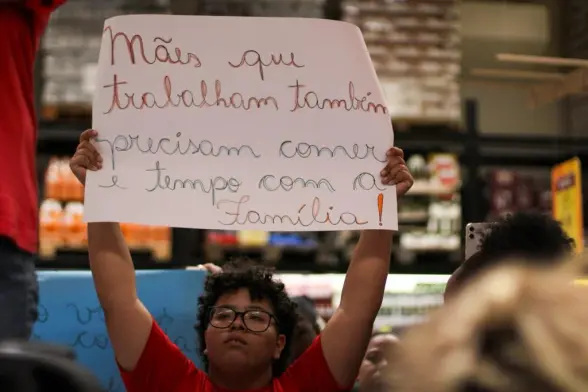 Mães que
trabalham também
precisam comer
e tempo com a
Família!